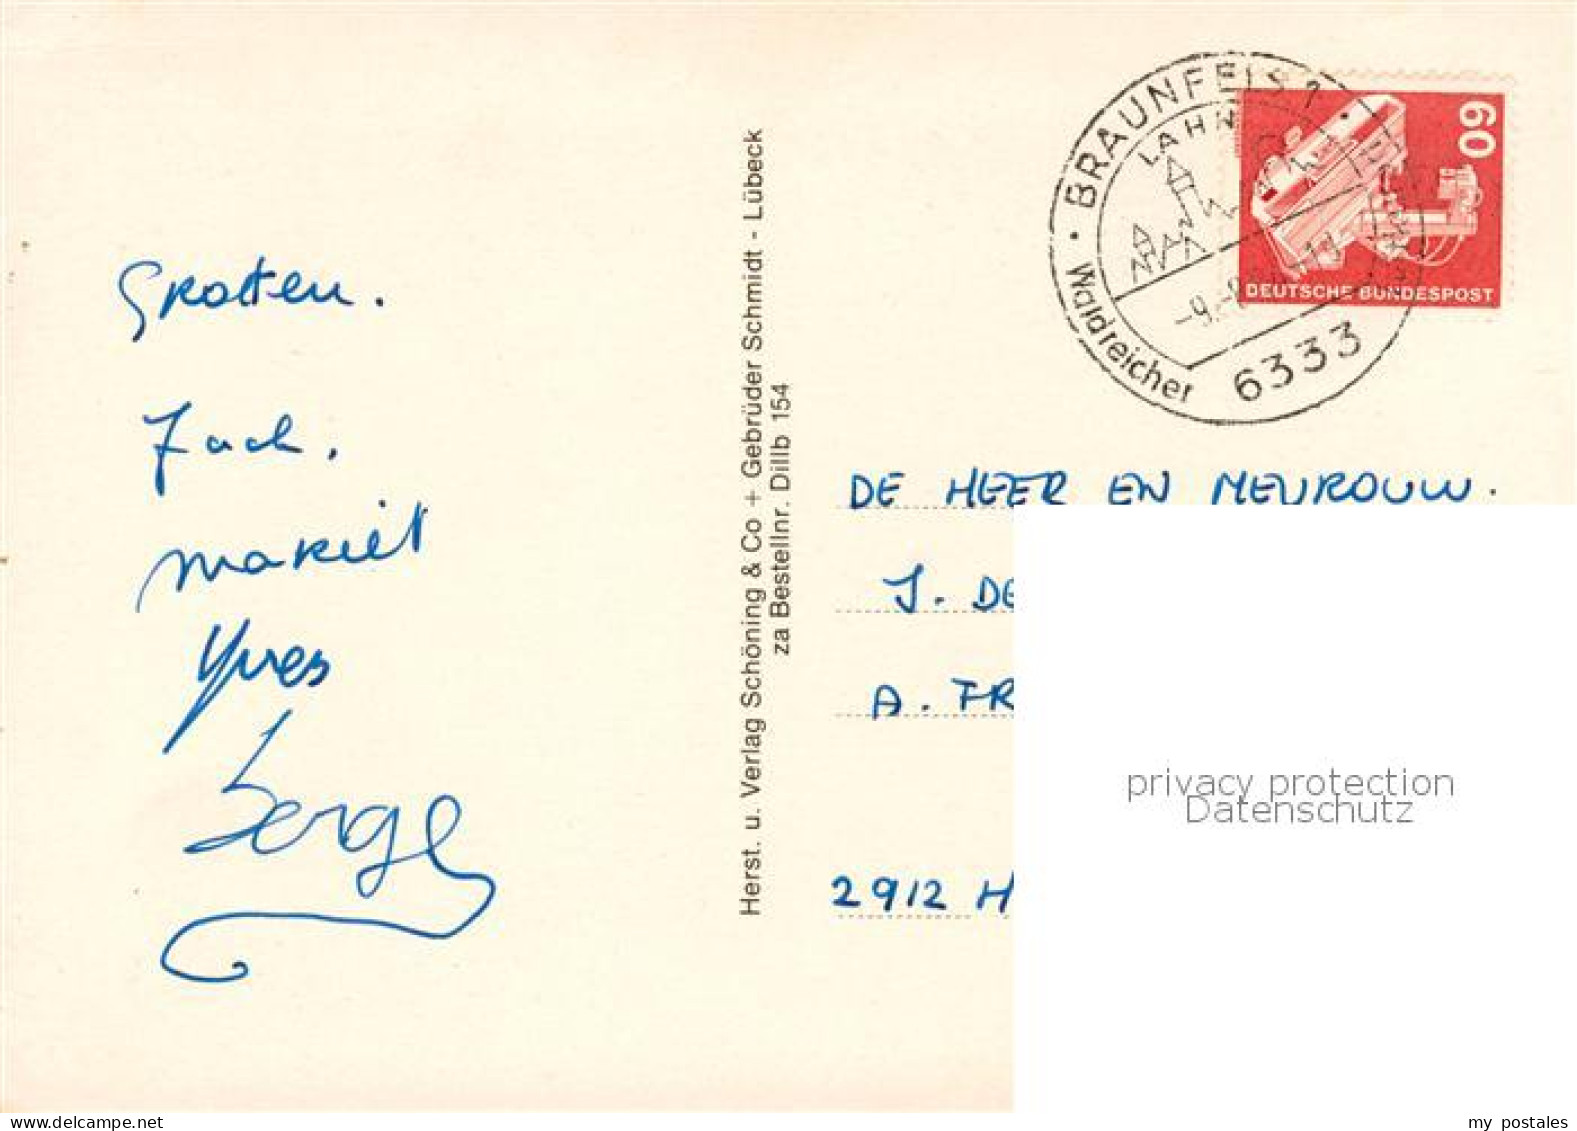 Groten.
Jack.
Mariët
Yves
Serge
Herst. u. Verlag Schöning & Co + Gebrüder Schmidt - Lübeck
za Bestellnr. Dillb 154
BRAUNFELS 1
LAHN
Waldreicher
6333
60
DEUTSCHE BUNDESPOST
DE HEER EN MEVROUW.
J. DE
A. FR
2912 H
privacy protection
Datenschutz
www.delcampe.net
my postales